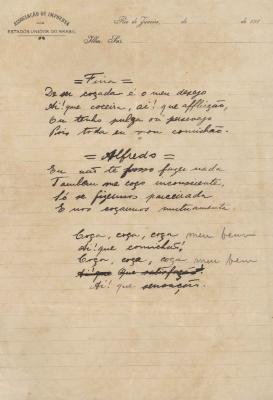 ASSOCIAÇÃO DE IMPRENSA
ESTADOS UNIDOS DO BRASIL
Rio de Janeiro, de de 191
Illm. Snr.
= Firra =
De me coçada é o meu desejo
Ai! que coceira, ai! que afflicção,
Eu tenho pulga ou persevejo
Pois toda eu sou comichão.
= Alfredo =
Eu não te posso fazer nada
Tambem me coço inconsciente,
Só se fizermos parceirada
E nos coçamos mutuamente
Coça, coça, coça meu bem
Ai! que comichão!
Coça, coça, coça meu bem
Ai! que que satisfação!
Ai! que sensação!